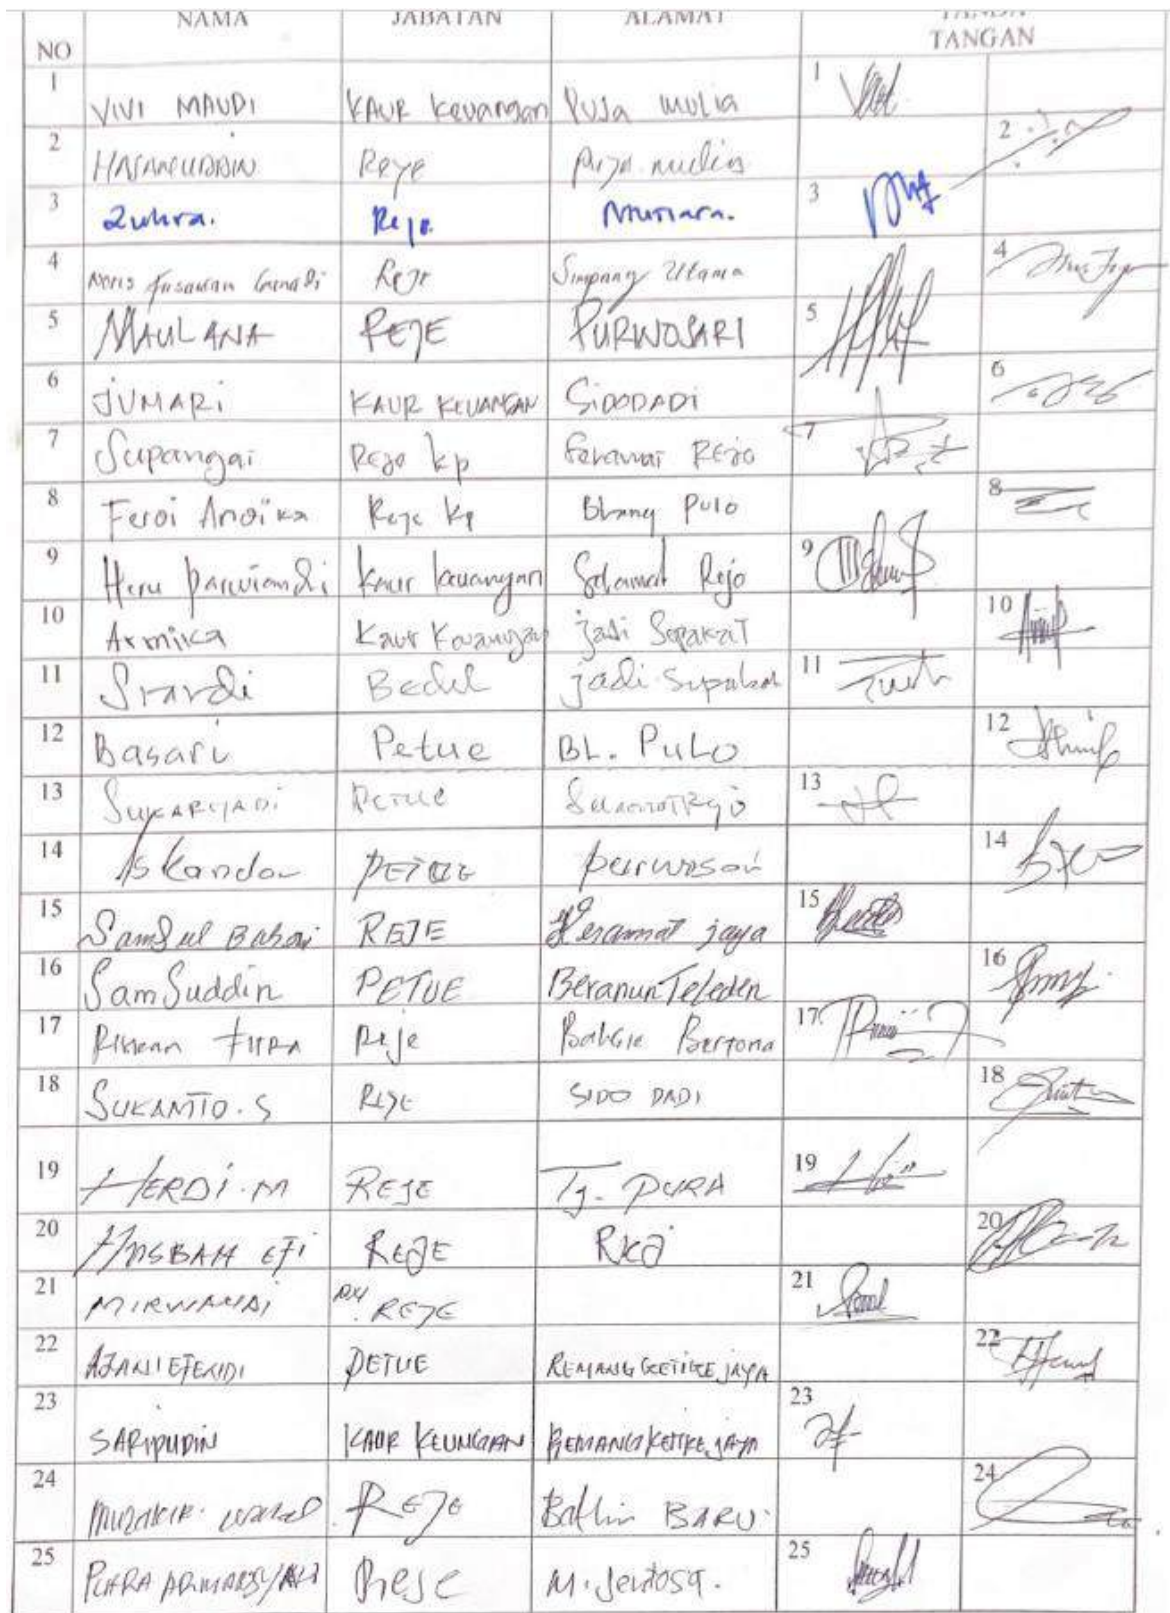 NAMA JABATAN ALAMAT TANDA
NO TANGAN
1 VIVI MAUDI KAUR Keuangan Puja mulia 1
2 HASANUDDIN Reje 2
3 Zuhra. Reje. Mutiara. 3
4 Reje Simpang Utama 4
5 MAULANA REJE PURWOSARI 5
6 JUMARI KAUR KEUANGAN SIDODADI 6
7 Supangai Reje kp REJO 7
8 Feroi Andika Reje Kp Blang Pulo 8
9 Heru Parwiandi Kaur keuangan Selamat Rejo 9
10 Armika Kaur Keuangan jadi Sepakat 10
11 Bedel jadi Sepakat 11
12 Basari Petue BL. PULO 12
13 SUKARYADI PETUE 13
14 Iskandar PETUE purwosari 14
15 Samsul Bahri REJE Keramat jaya 15
16 SamSuddin PETUE Beranun Teleden 16
17 Reje Bertona 17.
18 SUKANTO.S REJE SIDO DADI 18
19 HERDI.M REJE Tj. PURA 19
20 HASBAH EFI REJE 20
21 MIRWANAI REJE 21
22 AZANIEFENDI PETUE REMANG KETIKE JAYA 22
23 SARIPUDIN KAUR KEUNGAAN REMANG KETIKE JAYA 23
24 REJE BARU 24
25 Reje M. Jentosa. 25